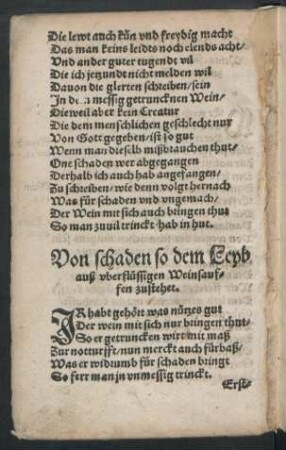 Die lewt auch kün vnd freydig macht
Das man keins leidts noch elends acht/
Vnd ander guter tugendt vil
Die ich jezundt nicht melden wil
Dauon die glerten schreiben/sein
In dem messig getruncknen Wein/
Dieweil aber kein Creatur
Die dem menschlichen geschlecht nur
Von Gott gegeben/ist so gut
Wenn man dieselb mißbrauchen thut/
One schaden wer abgegangen
Derhalb ich auch hab angefangen/
Zu schreiben/wie denn volgt hernach
Was für schaden vnd vngemach/
Der Wein mit sich auch bringen thut
So man zuuil trinckt/hab in hut.
Von schaden so dem Leyb
auß vberflüssigen Weinsauf-
fen zustehet.
IR habt gehört was nützes gut
Der wein mit sich nur bringen thut/
So er getruncken wirt mit maß
Zur notturfft/nun merckt auch fürbaß/
Was er widrumb für schaden bringt
So ferr man jn vnmessig trinckt.
Erst-